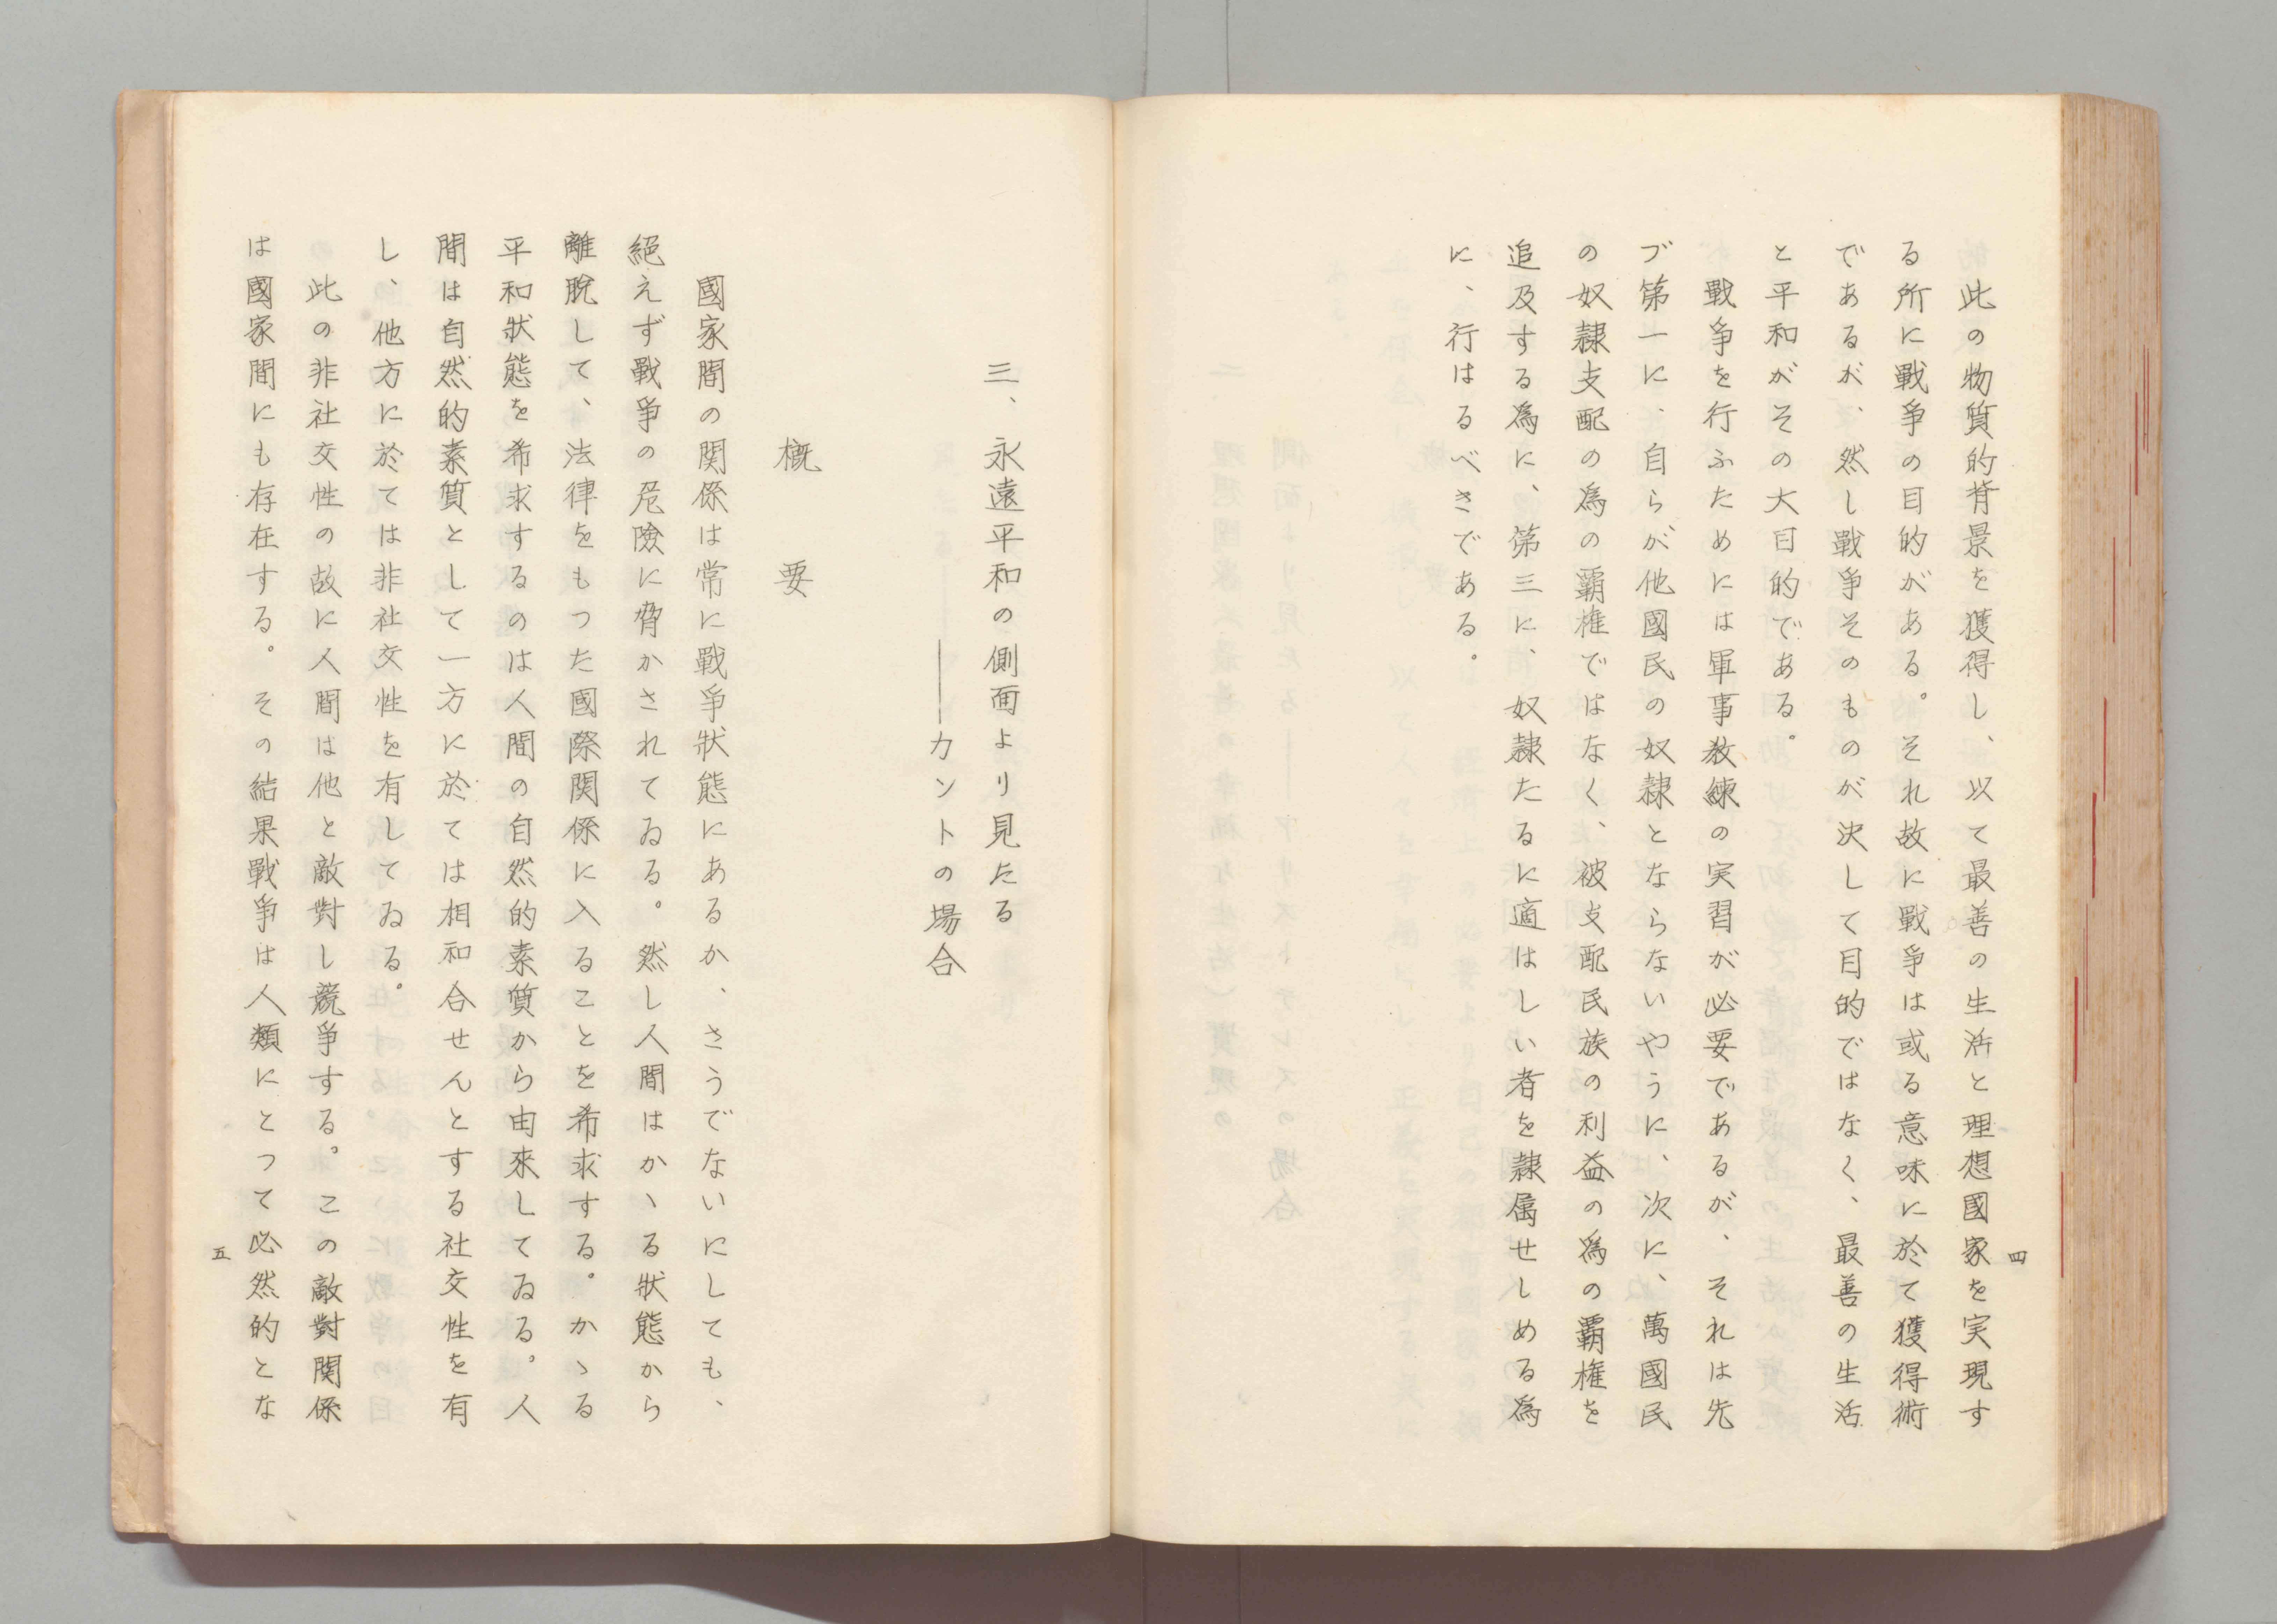 此の物質的背景を獲得し、以て最善の生活と理想國家を実現す
る所に戰爭の目的がある。それ故に戰爭は或る意味に於て獲得術
であるが、然し戰爭そのものが決して目的ではなく、最善の生活
と平和がその大目的である。
戰爭を行ふためには軍事教練の実習が必要であるが、それは先
ヅ第一に、自らが他國民の奴隷とならないやうに、次に、萬國民
の奴隷支配の爲の覇権ではなく、被支配民族の利益の爲の覇権を
追及する爲に、第三に、奴隷たるに適はしい者を隷属せしめる爲
に、行はるべきである。
四
三、永遠平和の側面より見たる
――カントの場合
概要
國家間の関係は常に戰爭狀態にあるか、さうでないにしても、
絕えず戰爭の危險に脅かされてゐる。然し人間はかゝる狀態から
離脫して、法律をもつた國際関係に入ることを希求する。かゝる
平和狀態を希求するのは人間の自然的素質から由來してゐる。人
間は自然的素質として一方に於ては相和合せんとする社交性を有
し、他方に於ては非社交性を有してゐる。
此の非社交性の故に人間は他と敵對し競爭する。この敵對関係
は國家間にも存在する。その結果戰爭は人類にとつて必然的とな
五